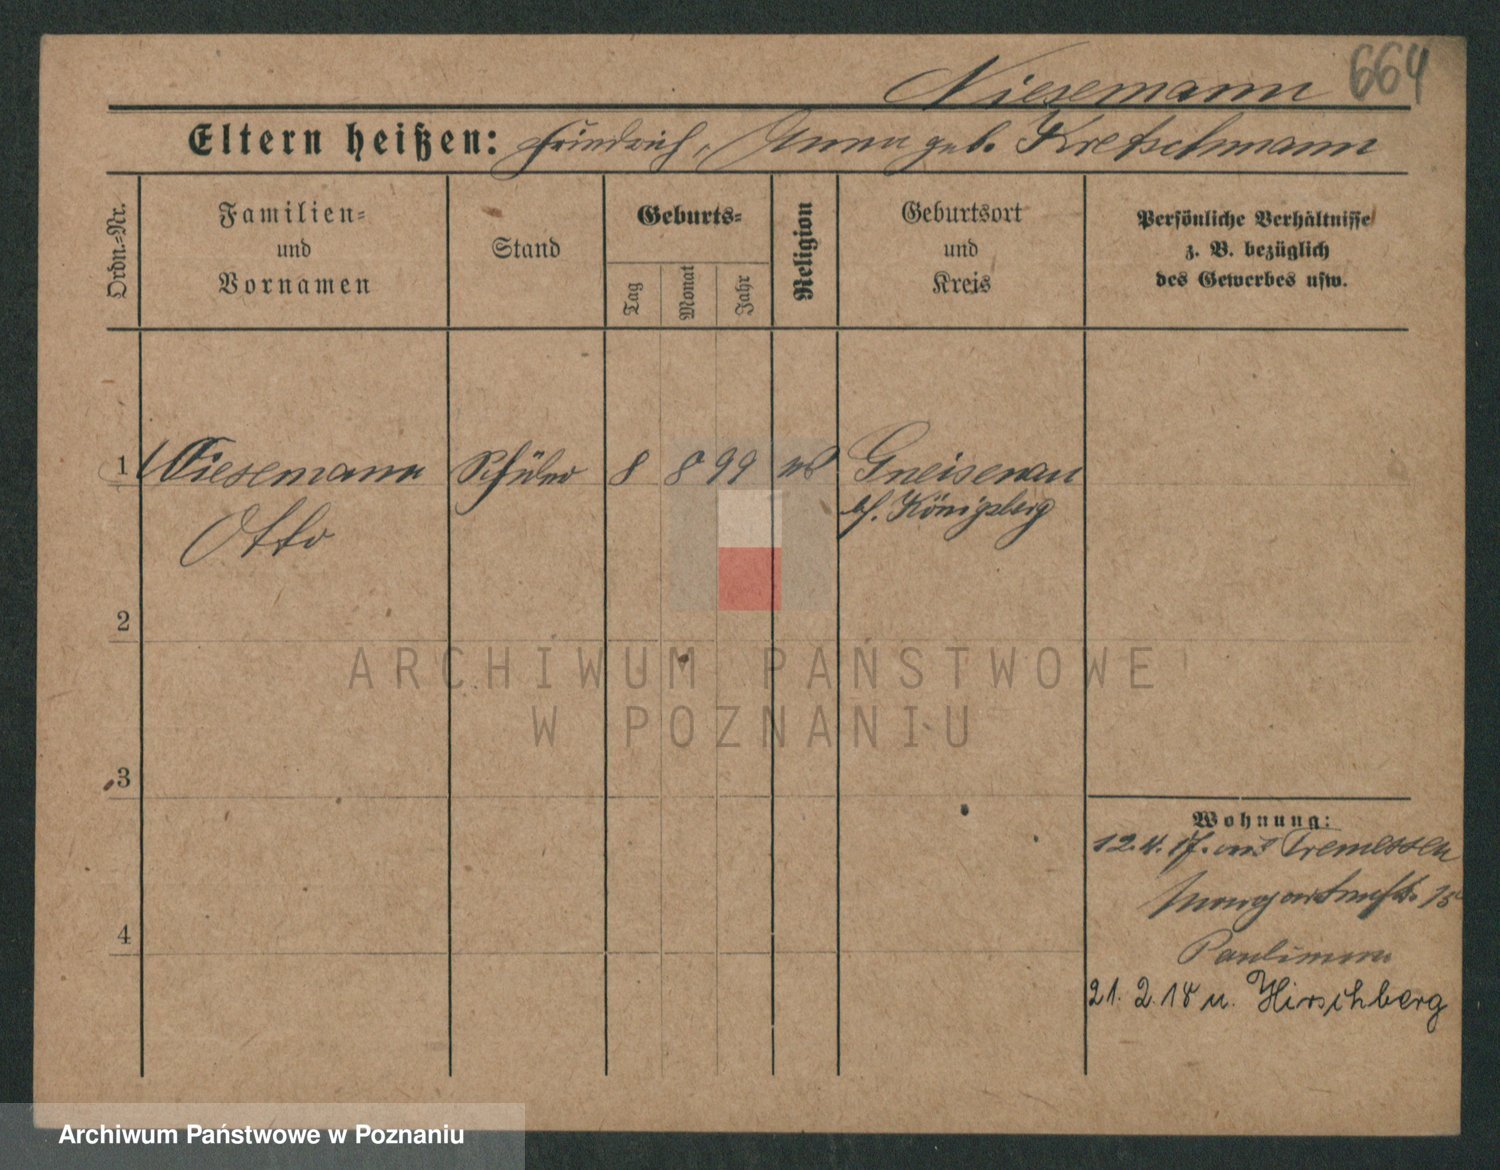 Niesemann 664
Eltern heißen: Friedrich, Anna geb. Kretschmann
Ordn.=Nr.
Familien=
und
Vornamen
Stand
Geburts=
Tag
Monat
Jahr
Religion
Geburtsort
und
Kreis
Persönliche Verhältnisse
z. B. bezüglich
des Gewerbes usw.
1 Niesemann Schüler 8 8 99 Gneisenau
Otto
Königsberg
2
ARCHIWUM PAŃSTWOWE
W POZNANIU
3
4
Wohnung:
12.4.17. Tremessen
15
Paulimann
21. 2. 18 n. Hirschberg
Archiwum Państwowe w Poznaniu